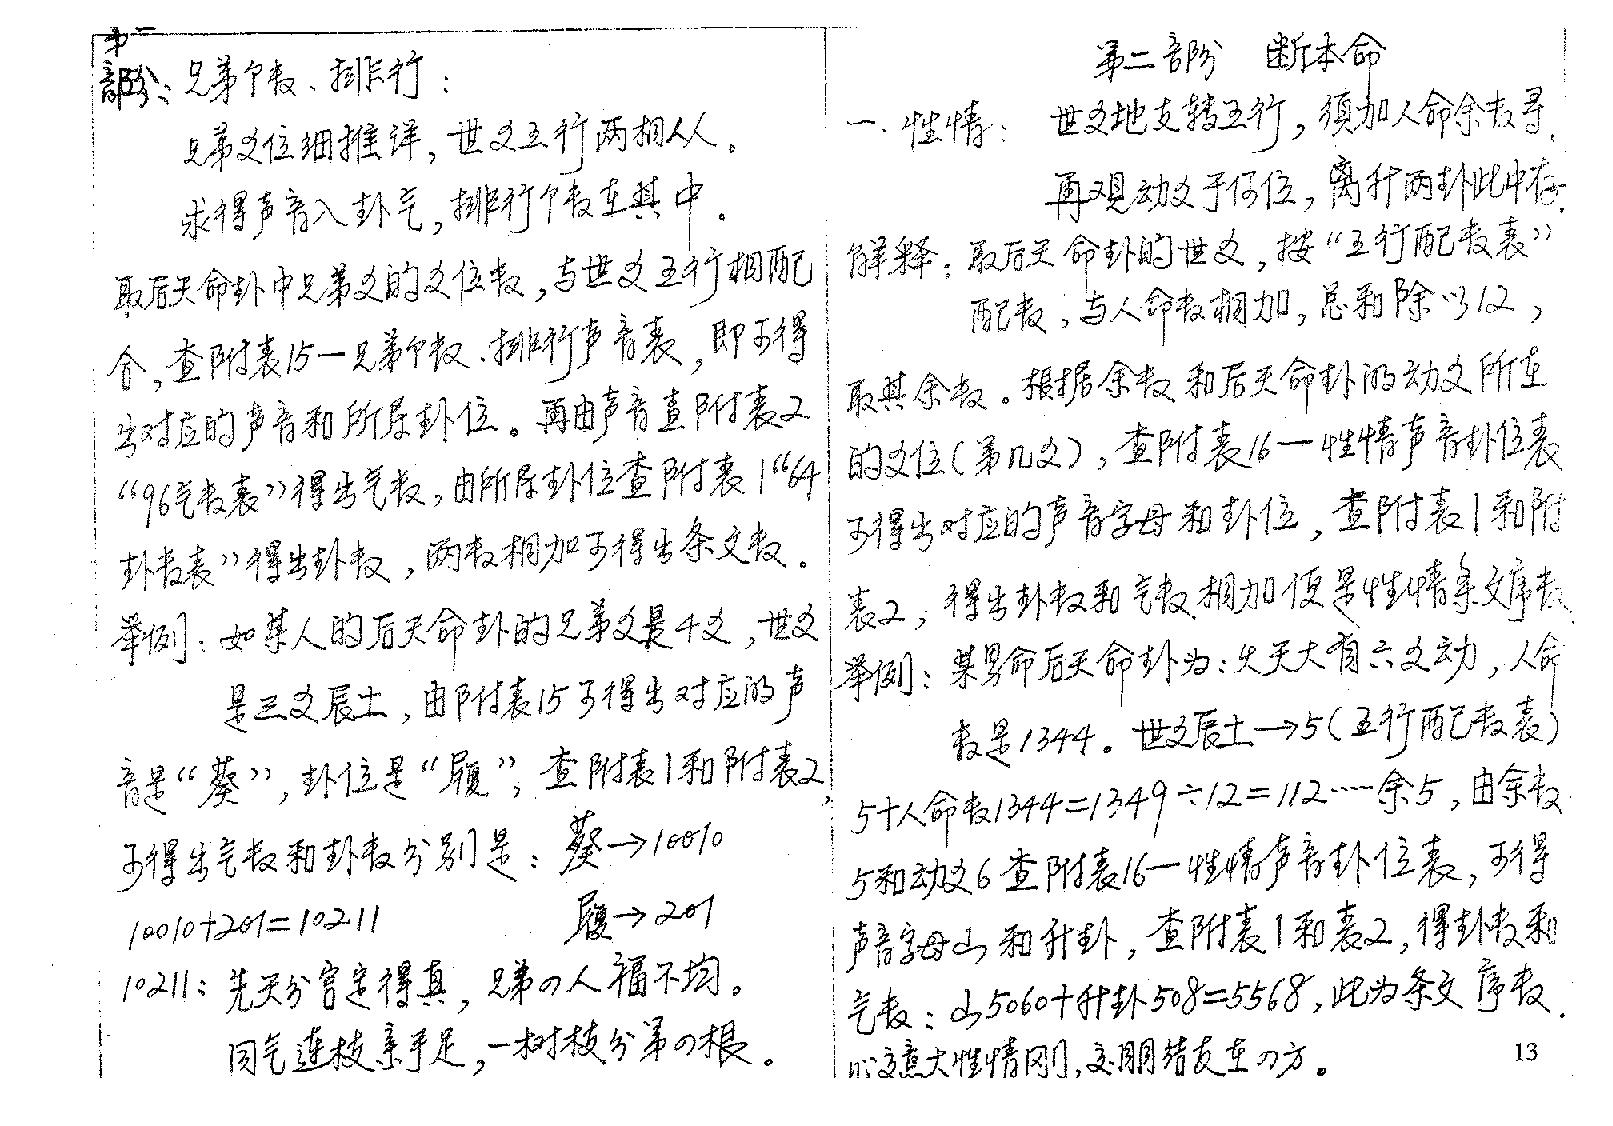 第二
部分、兄弟个数、排行：
兄弟爻位细推详，世爻五行两相从。
求得声音入卦气，排行个数在其中。
取后天命卦中兄弟爻的爻位数，与世爻五行相配
合，查附表15一兄弟个数、排行声音表，即可得
出对应的声音和所属卦位。再由声音查附表2
“96气数表”得出气数，由所属卦位查附表1“64
卦数表”得出卦数，两数相加可得出条文数。
举例：如某人的后天命卦的兄弟爻是4爻，世爻
是三爻辰土，由附表15可得出对应的声
音是“葵”，卦位是“履”，查附表1和附表2，
可得出气数和卦数分别是：葵→10010
10010+201=10211 履→201
10211：先天分宫定得真，兄弟の人福不均。
同气连枝亲手足，一树枝分弟の根。
第二部份 断本命
一、性情：世爻地支转五行，须加人命余数寻，
再观动爻于何位，离升两卦此中存。
解释：取后天命卦的世爻，按“五行配数表”
配数，与人命数相加，总和除以12，
取其余数。根据余数和后天命卦的动爻所在
的爻位（第几爻），查附表16一性情声音卦位表
可得出对应的声音字母和卦位，查附表1和附
表2，得出卦数和气数相加便是性情条文序数
举例：某男命后天命卦为：火天大有六爻动，人命
数是1344。世爻辰土→5（五行配数表）
5+人命数1344=1349÷12=112……余5，由余数
5和动爻6查附表16一性情声音卦位表，可得
声音字母山和升卦，查附表1和表2，得卦数和
气数：山5060+升卦508=5568，此为条文序数。
心高意大性情刚，交朋结友在の方。
13